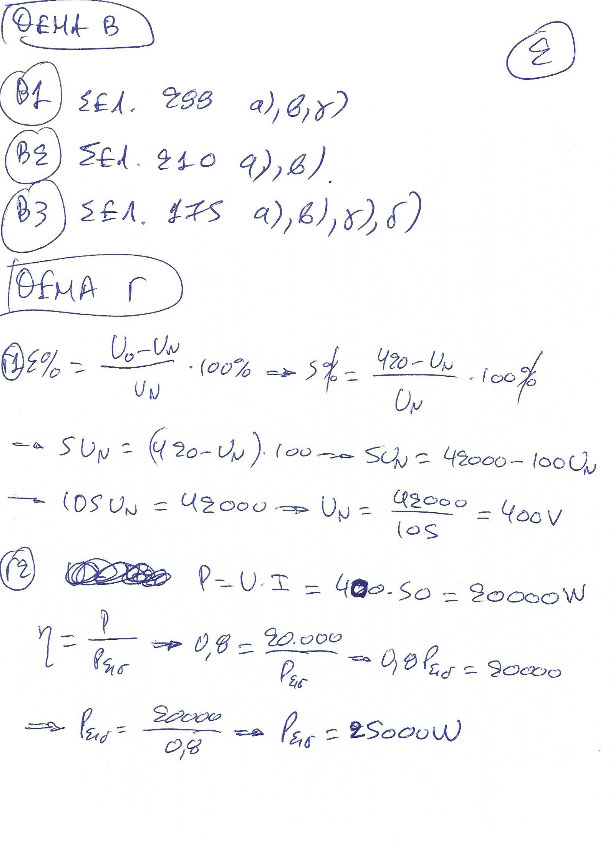 ΘΕΜΑ Β
2
Β1 ΣΕΛ. 299 α), β, γ)
Β2 ΣΕΛ. 210 α), β)
Β3 ΣΕΛ. 175 α), β), γ), δ)
ΘΕΜΑ Γ
Γ1 ε% = (U₀-U_N)/U_N · 100% → 5% = (420-U_N)/U_N · 100%
→ 5U_N = (420-U_N)·100 → 5U_N = 42000-100U_N
→ 105U_N = 42000 → U_N = 42000/105 = 400V
Γ2 P = U·I = 400·50 = 20000W
η = P/Pεισ → 0,8 = 20.000/Pεισ → 0,8Pεισ = 20000
⇒ Pεισ = 20000/0,8 → Pεισ = 25000W